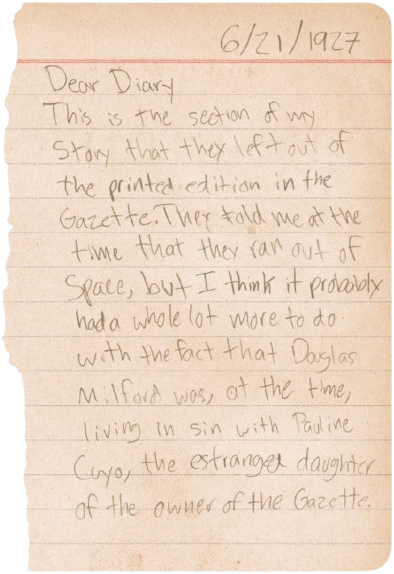 6/21/1927
Dear Diary
This is the section of my
Story that they left out of
the printed edition in the
Gazette. They told me at the
time that they ran out of
Space, but I think it probably
had a whole lot more to do
with the fact that Douglas
Milford was, at the time,
living in sin with Pauline
Cuyo, the estranged daughter
of the owner of the Gazette.